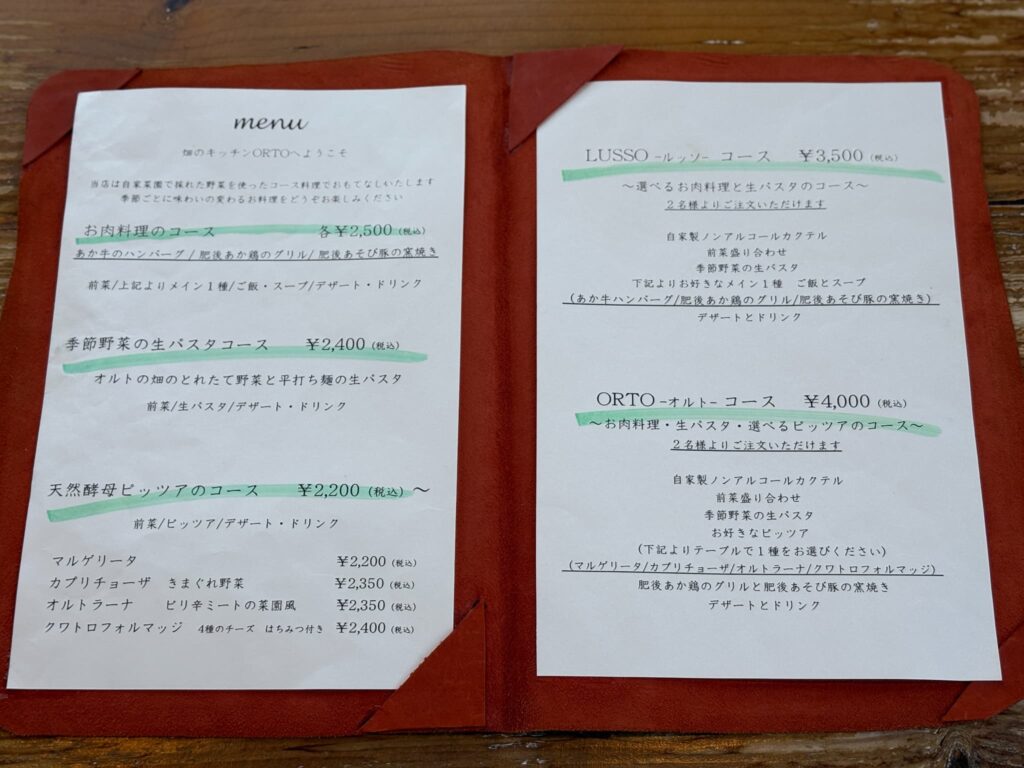 menu
畑のキッチンORTOへようこそ
当店は自家菜園で採れた野菜を使ったコース料理でおもてなしいたします
季節ごとに味わいの変わるお料理をどうぞお楽しみください
お肉料理のコース 各¥2,500(税込)
あか牛のハンバーグ/肥後あか鶏のグリル/肥後あそび豚の窯焼き
前菜/上記よりメイン1種/ご飯・スープ/デザート・ドリンク
季節野菜の生パスタコース ¥2,400(税込)
オルトの畑のとれたて野菜と平打ち麺の生パスタ
前菜/生パスタ/デザート・ドリンク
天然酵母ピッツアのコース ¥2,200(税込)〜
前菜/ピッツア/デザート・ドリンク
マルゲリータ ¥2,200(税込)
カプリチョーザ きまぐれ野菜 ¥2,350(税込)
オルトラーナ ピリ辛ミートの菜園風 ¥2,350(税込)
クワトロフォルマッジ 4種のチーズ はちみつ付き ¥2,400(税込)
LUSSO-ルッソ- コース ¥3,500(税込)
〜選べるお肉料理と生パスタのコース〜
2名様よりご注文いただけます
自家製ノンアルコールカクテル
前菜盛り合わせ
季節野菜の生パスタ
下記よりお好きなメイン1種 ご飯とスープ
(あか牛ハンバーグ/肥後あか鶏のグリル/肥後あそび豚の窯焼き)
デザートとドリンク
ORTO-オルト- コース ¥4,000(税込)
〜お肉料理・生パスタ・選べるピッツアのコース〜
2名様よりご注文いただけます
自家製ノンアルコールカクテル
前菜盛り合わせ
季節野菜の生パスタ
お好きなピッツア
(下記よりテーブルで1種をお選びください)
(マルゲリータ/カプリチョーザ/オルトラーナ/クワトロフォルマッジ)
肥後あか鶏のグリルと肥後あそび豚の窯焼き
デザートとドリンク